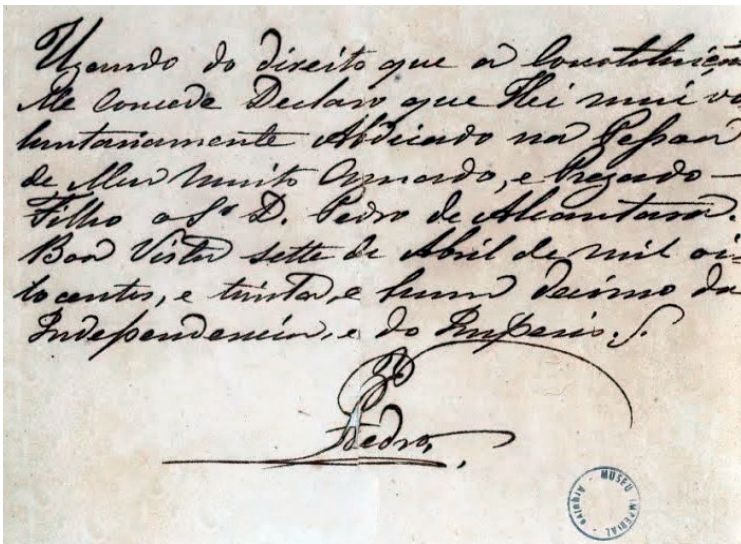 Uzando do direito que a Constituição
Me Concede Declaro que Hei mui vo
luntariamente Abdicado na Pessoa
de Meu muito Amado, e Prezado
Filho o Sr. D. Pedro de Alcantara.
Boa Vista sette de Abril de mil oi
to centos, e trinta, e hum decimo da
Independencia, e do Imperio.
Pedro
MUSEU IMPERIAL - Arquivo